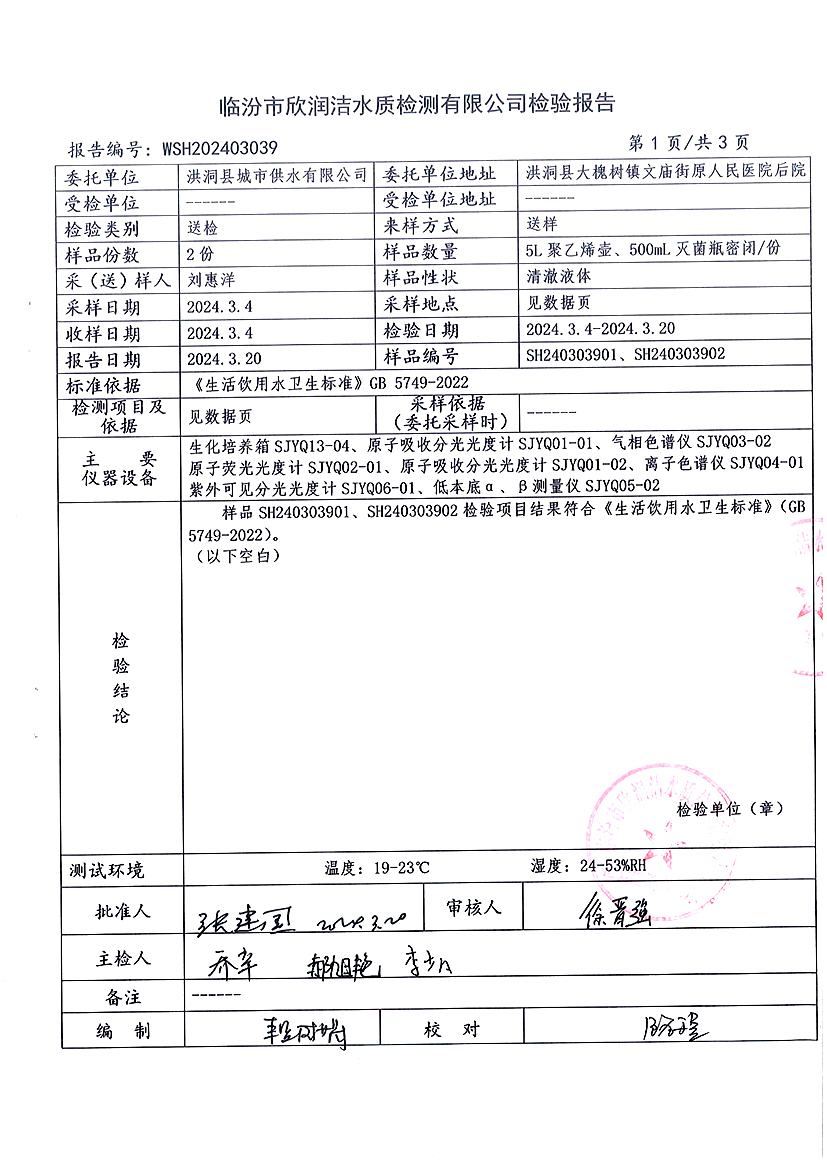 临汾市欣润洁水质检测有限公司检验报告
报告编号: WSH202403039 第 1 页/共 3 页
委托单位 洪洞县城市供水有限公司 委托单位地址 洪洞县大槐树镇文庙街原人民医院后院
受检单位 ------ 受检单位地址 ------
检验类别 送检 来样方式 送样
样品份数 2 份 样品数量 5L 聚乙烯壶、500mL 灭菌瓶密闭/份
采（送）样人 刘惠洋 样品性状 清澈液体
采样日期 2024.3.4 采样地点 见数据页
收样日期 2024.3.4 检验日期 2024.3.4-2024.3.20
报告日期 2024.3.20 样品编号 SH240303901、SH240303902
标准依据 《生活饮用水卫生标准》GB 5749-2022
检测项目及 采样依据
依据 见数据页 （委托采样时） ------
生化培养箱 SJYQ13-04、原子吸收分光光度计 SJYQ01-01、气相色谱仪 SJYQ03-02
主 要
原子荧光光度计 SJYQ02-01、原子吸收分光光度计 SJYQ01-02、离子色谱仪 SJYQ04-01
仪器设备
紫外可见分光光度计 SJYQ06-01、低本底α、β测量仪 SJYQ05-02
样品 SH240303901、SH240303902 检验项目结果符合《生活饮用水卫生标准》（GB
5749-2022）。
（以下空白）
检
验
结
论
检验单位（章）
测试环境 温度: 19-23℃ 湿度: 24-53%RH
批准人 张建国 2024.3.20 审核人 徐晋强
主检人 乔军 郝旭艳
备注 ------
编 制 校 对